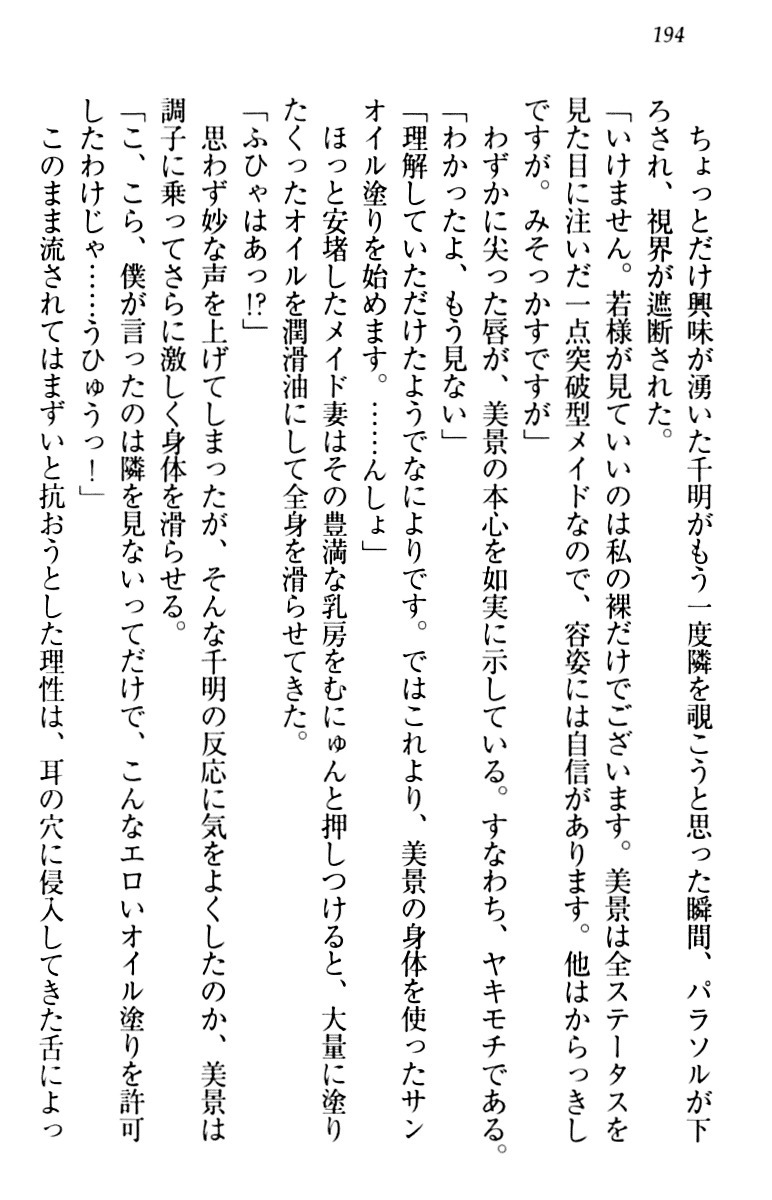 194
ちょっとだけ興味が湧いた千明がもう一度隣を覗こうと思った瞬間、パラソルが下
ろされ、視界が遮断された。
「いけません。若様が見ていいのは私の裸だけでございます。美景は全ステータスを
見た目に注いだ一点突破型メイドなので、容姿には自信があります。他はからっきし
ですが。みそっかすですが」
わずかに尖った唇が、美景の本心を如実に示している。すなわち、ヤキモチである。
「わかったよ、もう見ない」
「理解していただけたようでなによりです。ではこれより、美景の身体を使ったサン
オイル塗りを始めます。……んしょ」
ほっと安堵したメイド妻はその豊満な乳房をむにゅんと押しつけると、大量に塗り
たくったオイルを潤滑油にして全身を滑らせてきた。
「ふひゃはあっ!?」
思わず妙な声を上げてしまったが、そんな千明の反応に気をよくしたのか、美景は
調子に乗ってさらに激しく身体を滑らせる。
「こ、こら、僕が言ったのは隣を見ないってだけで、こんなエロいオイル塗りを許可
したわけじゃ……うひゅうっ！」
このまま流されてはまずいと抗おうとした理性は、耳の穴に侵入してきた舌によっ